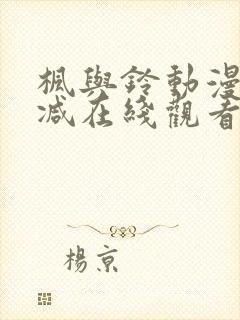 楓與鈴動漫
减在綫觀看
楊京